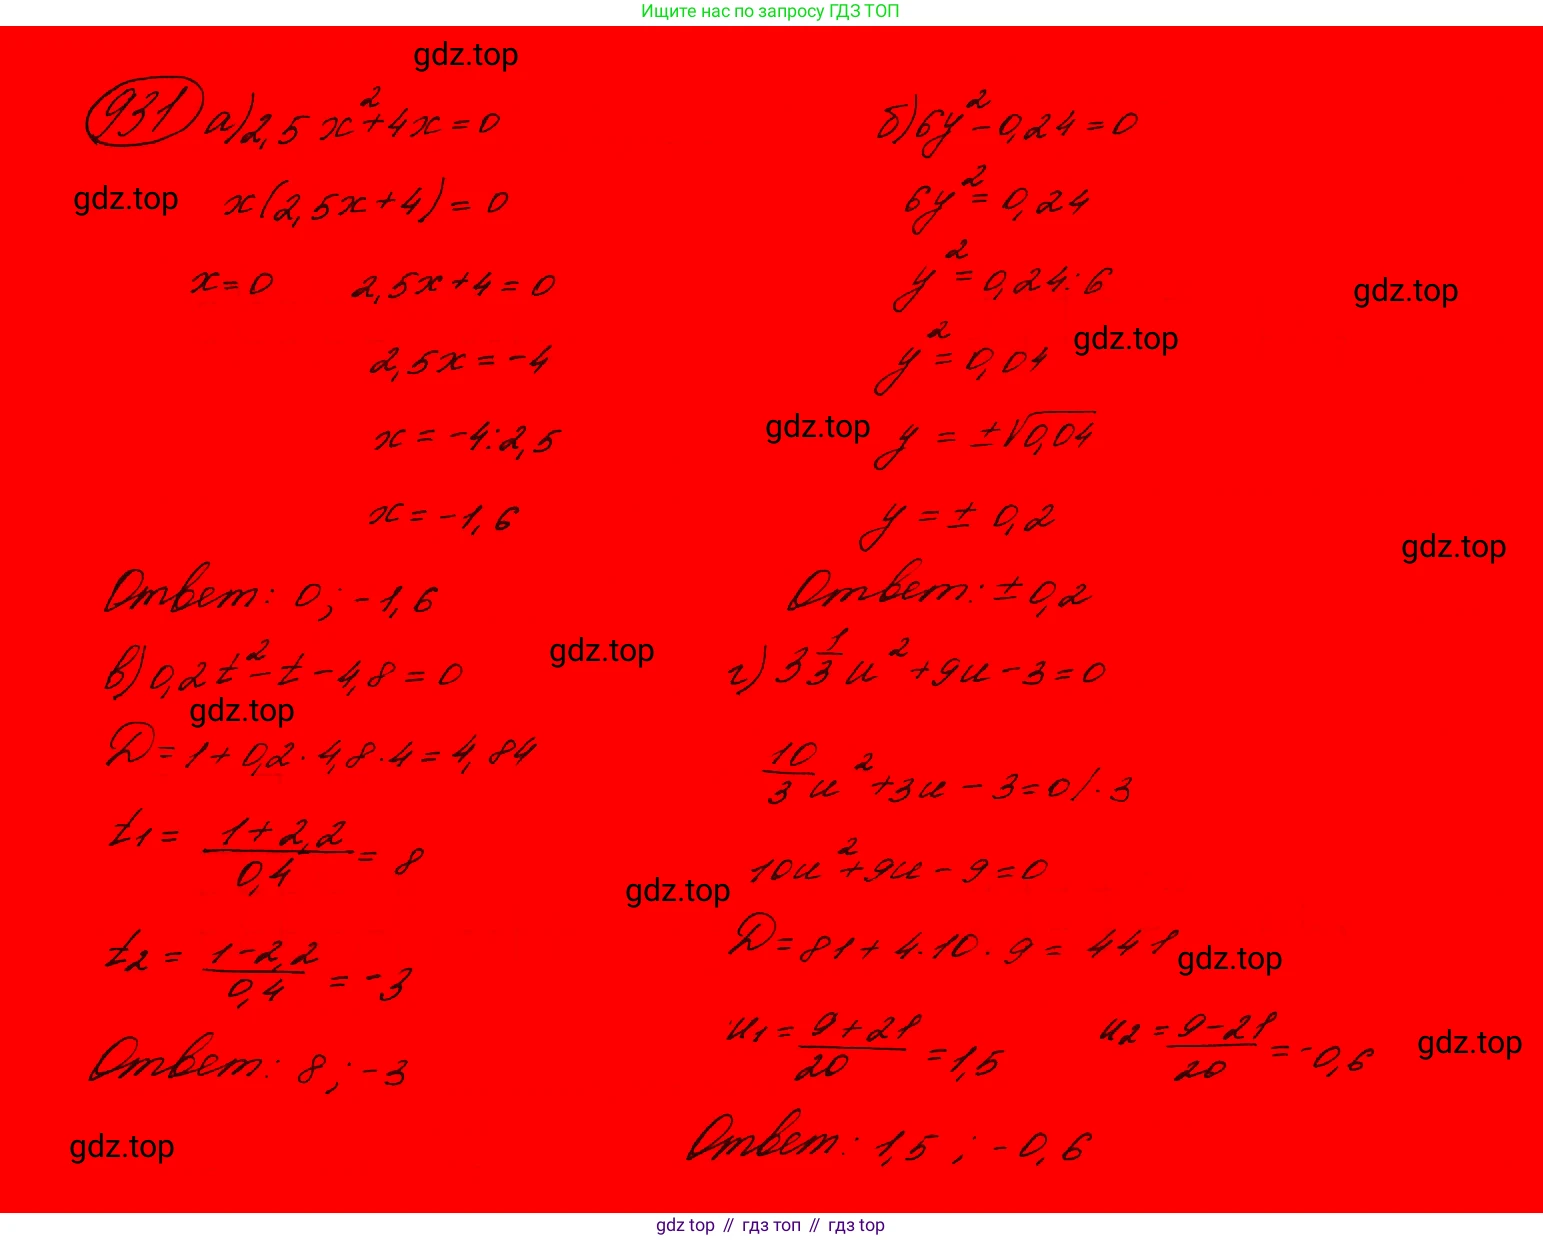 Ищите нас по запросу ГДЗ ТОП
gdz.top
931 а) 2,5x²+4x=0
gdz.top
x(2,5x+4)=0
x=0 2,5x+4=0
2,5x=-4
x=-4:2,5
x=-1,6
Ответ: 0; -1,6
б) 6y²-0,24=0
6y²=0,24
y²=0,24:6
gdz.top
y²=0,04
gdz.top
gdz.top
y=±√0,04
y=±0,2
gdz.top
Ответ: ±0,2
gdz.top
в) 0,2t²-t-4,8=0
gdz.top
D=1+0,2·4,8·4=4,84
t1=(1+2,2)/0,4=8
t2=(1-2,2)/0,4=-3
Ответ: 8; -3
gdz.top
г) 3 1/3 u²+9u-3=0
10/3 u²+3u-3=0/·3
10u²+9u-9=0
gdz.top
D=81+4·10·9=441
gdz.top
u1=(9+21)/20=1,5 u2=(9-21)/20=-0,6
gdz.top
Ответ: 1,5; -0,6
gdz top // гдз топ // gdz top